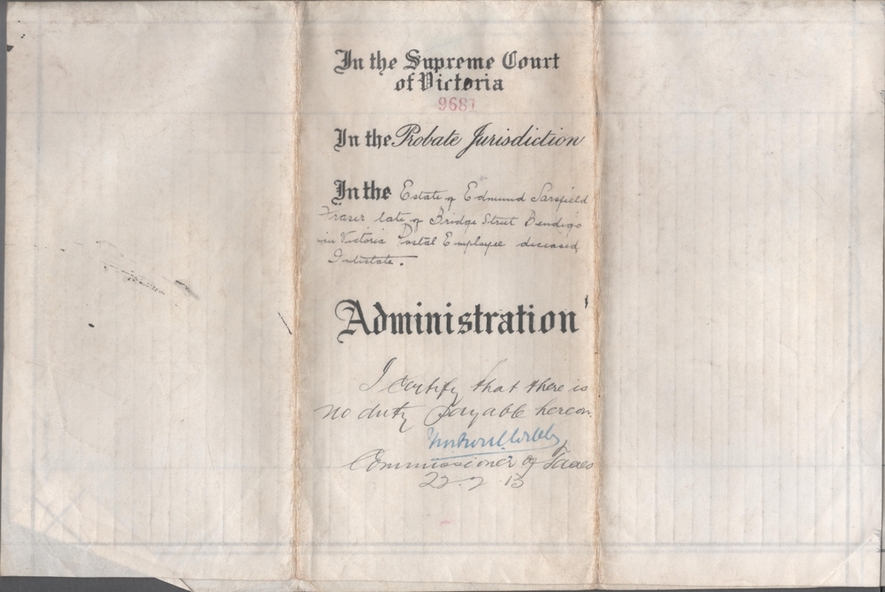 In the Supreme Court
of Victoria
9687
In the Probate Jurisdiction
In the Estate of Edmund Sarsfield
Fraser late of Bridge Street Bendigo
in Victoria Postal Employee deceased
Intestate.
Administration
I certify that there is
no duty payable hereon.
Commissioner of Taxes
22.2.13